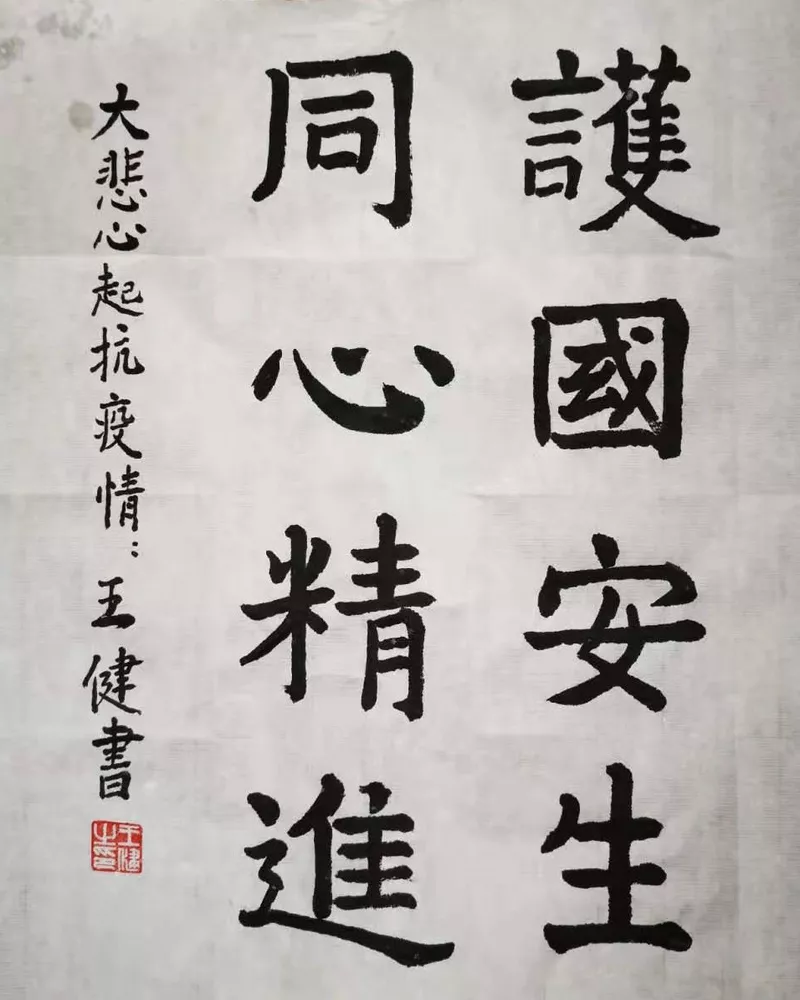 護國安生
同心精進
大悲心起抗疫情：王健書
王健之印